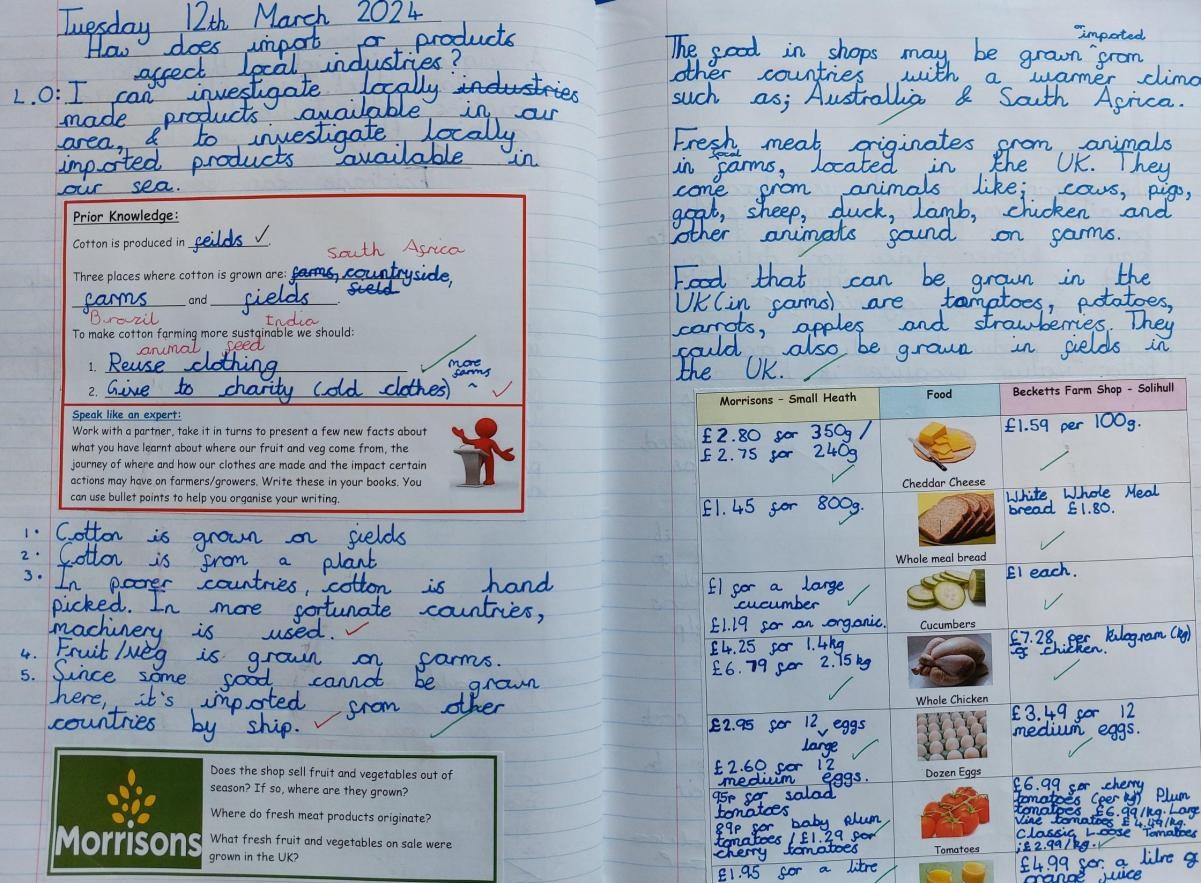 Tuesday 12th March 2024
How does import or products
affect local industries?
L.O: I can investigate locally industries
made products available in our
area, & to investigate locally
imported products available in
our sea.
Prior Knowledge:
Cotton is produced in feilds ✓.
South Africa
Three places where cotton is grown are: farms, countryside,
field
farms and fields.
Brazil India
To make cotton farming more sustainable we should:
animal feed
1. Reuse clothing
more farms
2. Give to charity (old clothes) ^
Speak like an expert:
Work with a partner, take it in turns to present a few new facts about
what you have learnt about where our fruit and veg come from, the
journey of where and how our clothes are made and the impact certain
actions may have on farmers/growers. Write these in your books. You
can use bullet points to help you organise your writing.
1. Cotton is grown on fields
2. Cotton is from a plant
3. In poorer countries, cotton is hand
picked. In more fortunate countries,
machinery is used.
4. Fruit/veg is grown on farms.
5. Since some food cannot be grown
here, it's imported from other
countries by ship.
Morrisons
Does the shop sell fruit and vegetables out of
season? If so, where are they grown?
Where do fresh meat products originate?
What fresh fruit and vegetables on sale were
grown in the UK?
or imported
The food in shops may be grown ^ from
other countries with a warmer clima
such as; Australlia & South Africa.
Fresh meat originates from animals
local
in farms, located in the UK. They
come from animals like; cows, pigs,
goat, sheep, duck, lamb, chicken and
other animals found on farms.
Food that can be grown in the
UK (in farms) are tomatoes, potatoes,
carrots, apples and strawberries. They
could also be grown in fields in
the UK.
Morrisons – Small Heath
Food
Becketts Farm Shop - Solihull
£2.80 for 350g /
£2.75 for 240g
Cheddar Cheese
£1.59 per 100g.
£1.45 for 800g.
Whole meal bread
White Whole Meal
bread £1.80.
£1 for a large
cucumber
£1.19 for an organic.
Cucumbers
£1 each.
£4.25 for 1.4kg
£6.79 for 2.15kg
Whole Chicken
£7.28 per kilogram (kg)
of chicken.
£2.95 for 12 eggs
large
£2.60 for 12
medium eggs.
Dozen Eggs
£3.49 for 12
medium eggs.
95p for salad
tomatoes
89p for baby plum
tomatoes / £1.29 for
cherry tomatoes
Tomatoes
£6.99 for cherry
tomatoes (per kg) Plum
tomatoes £6.99/kg. Large
Vine tomatoes £4.49/kg.
Classic Loose Tomatoes
is £2.99/kg.
£1.95 for a litre
£4.99 for a litre of
orange juice